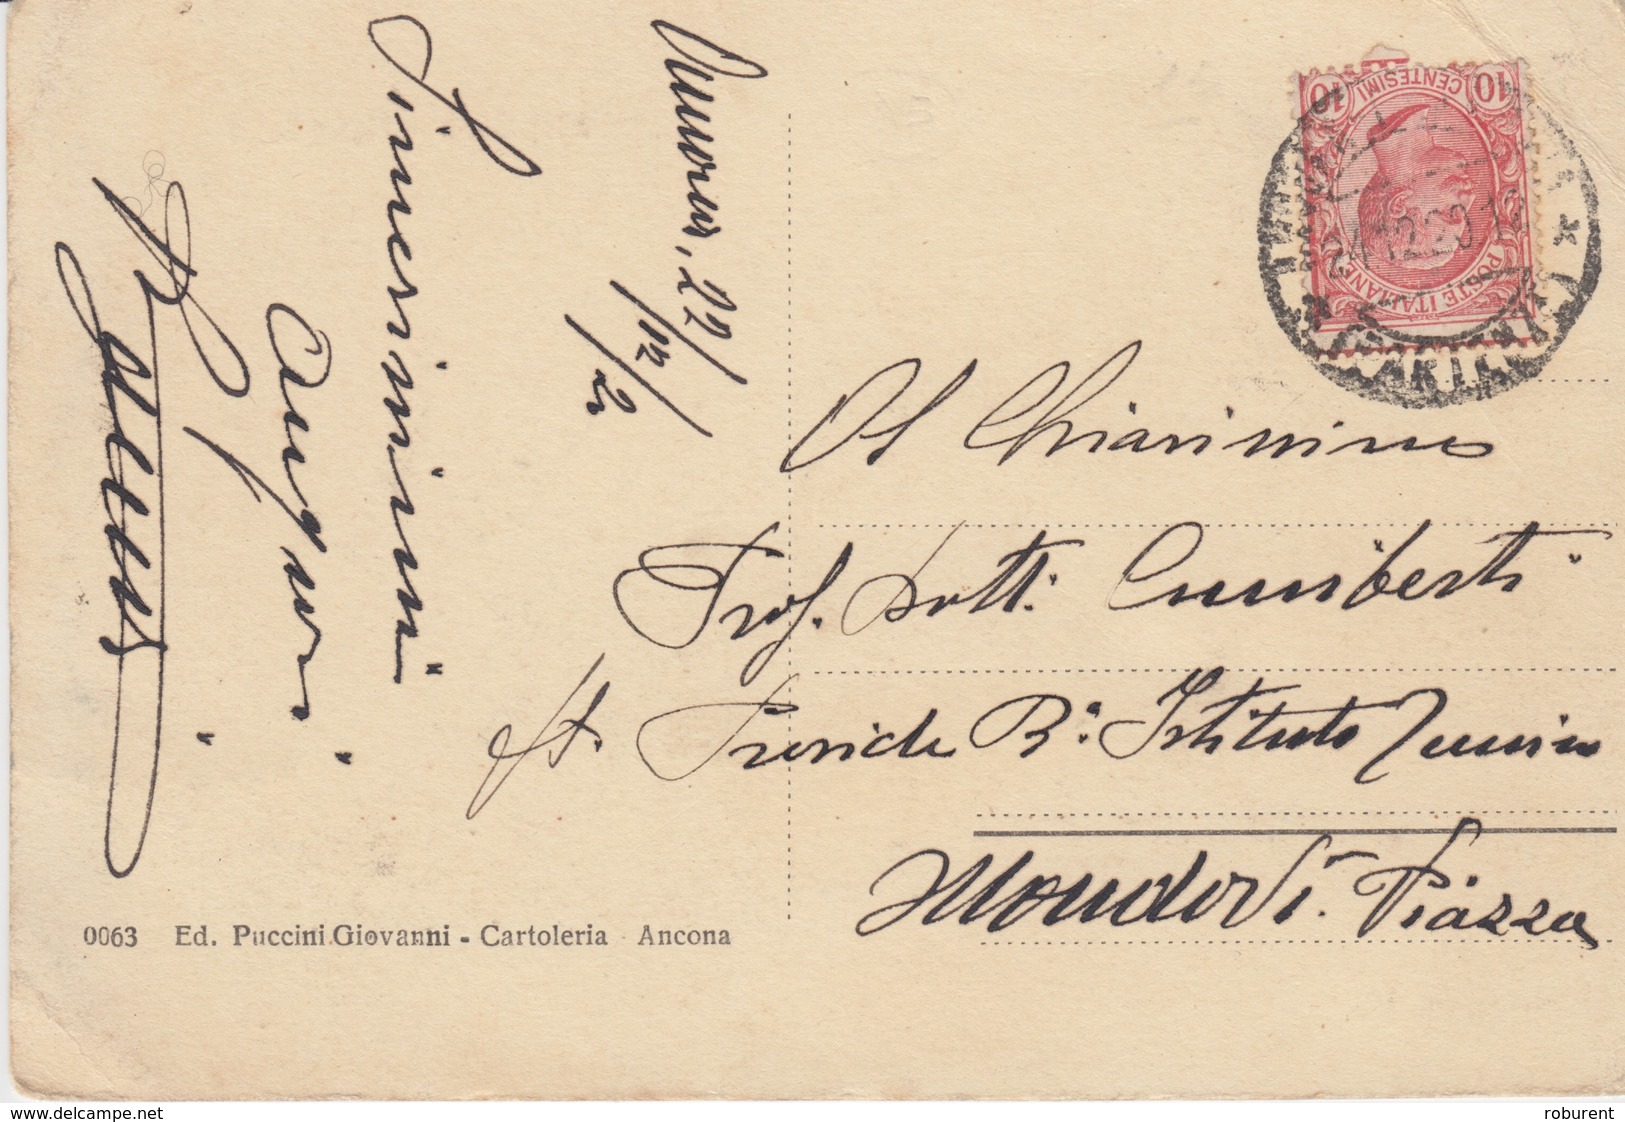 22/12/2
Sincerissimi
Auguri
10 CENTESIMI 10
POSTE ITALIANE
24.12.23
Al Chiarissimo
Prof. Dott. Cumiberti
Preside R.º Istituto Tecnico
Mondovì-Piazza
0063 Ed. Puccini Giovanni - Cartoleria Ancona
www.delcampe.net
roburent